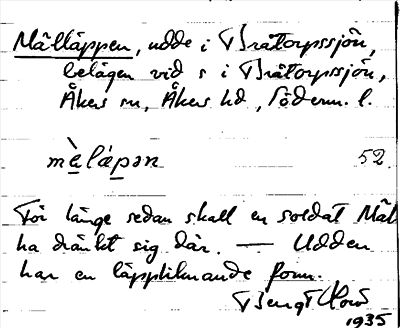 Målläppen, udde i Bråtorpssjön,
belägen vid s i Bråtorpssjön,
Åkers sn, Åkers hd, Söderm. l.
mὰlápən 52.
För länge sedan skall en soldat Mål
ha dränkt sig där. — Udden
har en läppliknande form.
Bengt
1935